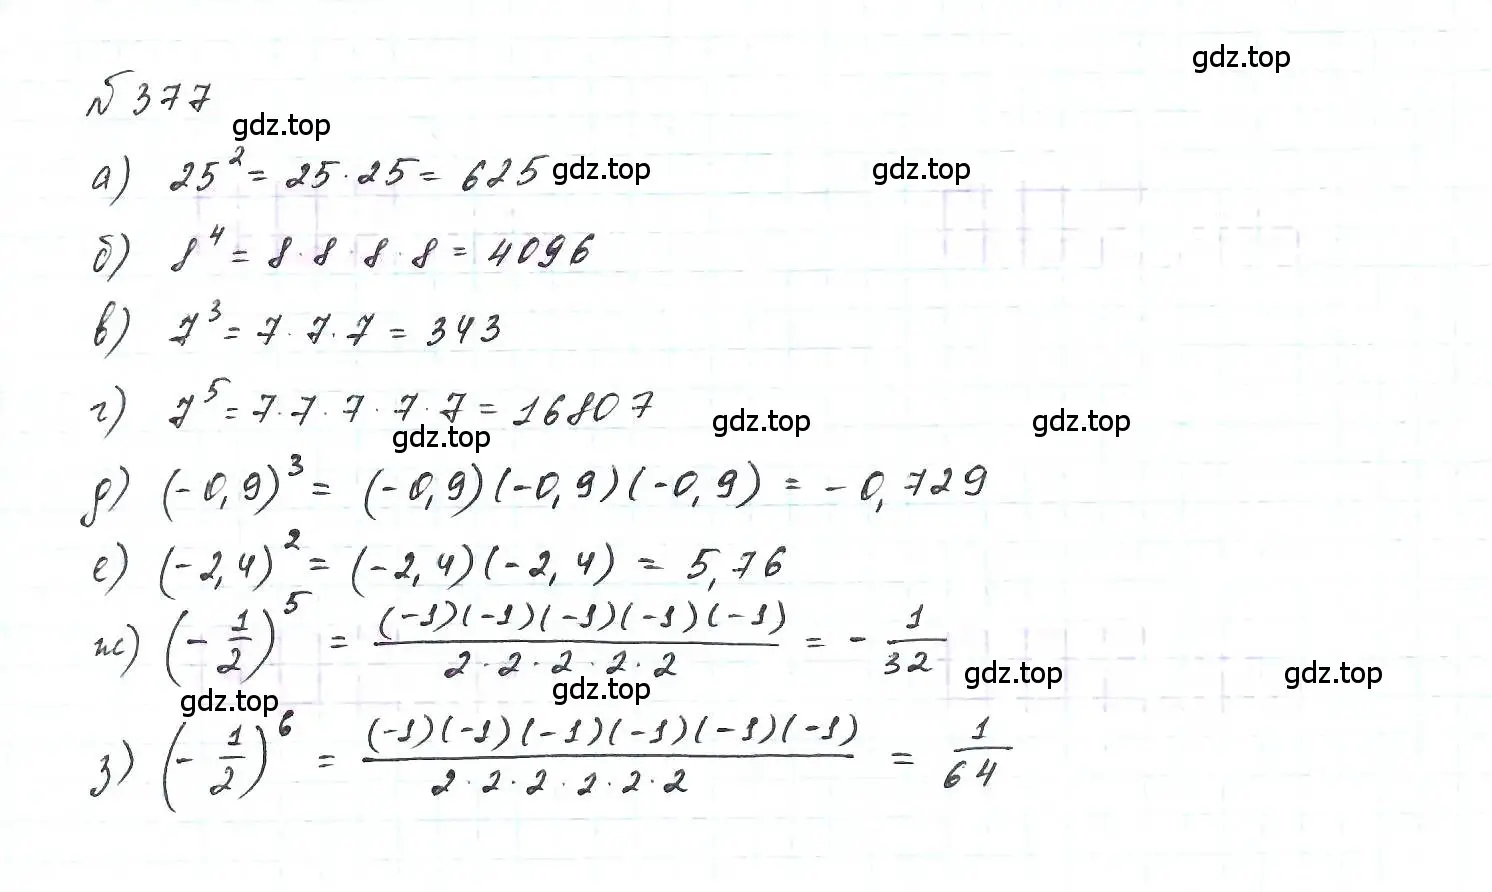 gdz.top
№ 377
gdz.top
а) 25² = 25 · 25 = 625 gdz.top gdz.top
б) 8⁴ = 8 · 8 · 8 · 8 = 4096
в) 7³ = 7 · 7 · 7 = 343
г) 7⁵ = 7 · 7 · 7 · 7 · 7 = 16807
gdz.top gdz.top gdz.top
д) (-0,9)³ = (-0,9)(-0,9)(-0,9) = -0,729
е) (-2,4)² = (-2,4)(-2,4) = 5,76
ж) (-1/2)⁵ = (-1)(-1)(-1)(-1)(-1)/2 · 2 · 2 · 2 · 2 = -1/32
gdz.top gdz.top gdz.top gdz.top
з) (-1/2)⁶ = (-1)(-1)(-1)(-1)(-1)(-1)/2 · 2 · 2 · 2 · 2 · 2 = 1/64